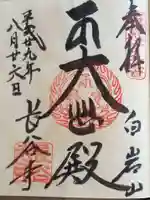 奉拝
白岩山
大悲殿
平成廿九年
八月廿六日
長谷寺